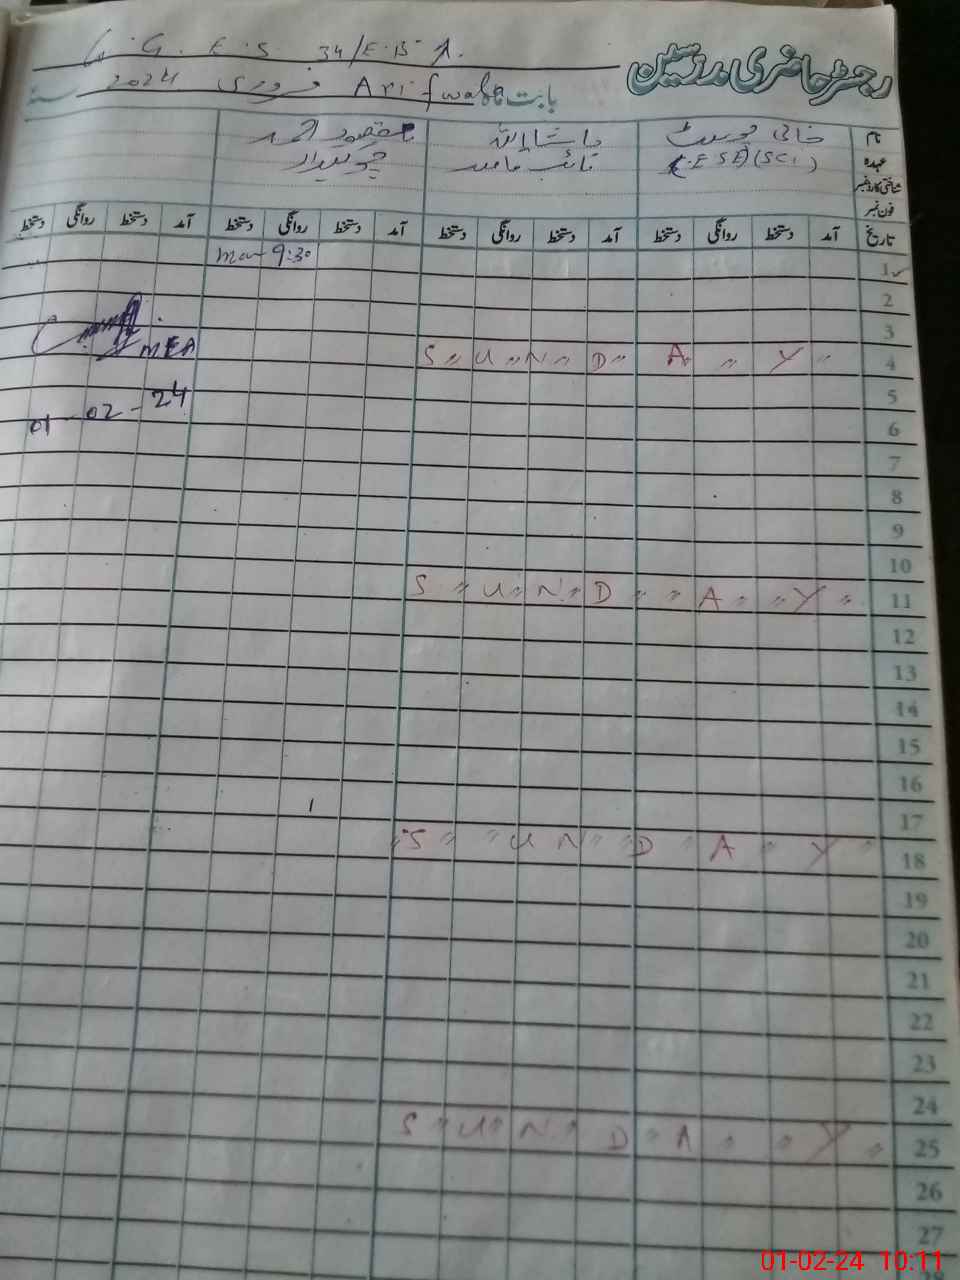 G. G. E. S 34/E.B A.
رجسٹر حاضری مدرسین
بابت ماہ Arifwala فروری 2024 سنہ
نام خالی پوسٹ ماشاءاللہ مقصود احمد
عہدہ (E S E) (SCI) نائب قاصد چوکیدار
شناختی کارڈ نمبر
فون نمبر
تاریخ آمد دستخط روانگی دستخط آمد دستخط روانگی دستخط آمد دستخط روانگی دستخط آمد دستخط روانگی دستخط
1 9:30
2
3
MEA
4 S " U " N " D " A " Y "
5
01 - 02 - 24
6
7
8
9
10
11 S " U " N " D " " A " " Y "
12
13
14
15
16
17
18 " S " " U N " D " A " Y "
19
20
21
22
23
24
25 S " U " N " D " A " " Y "
26
27
28
01-02-24 10:11